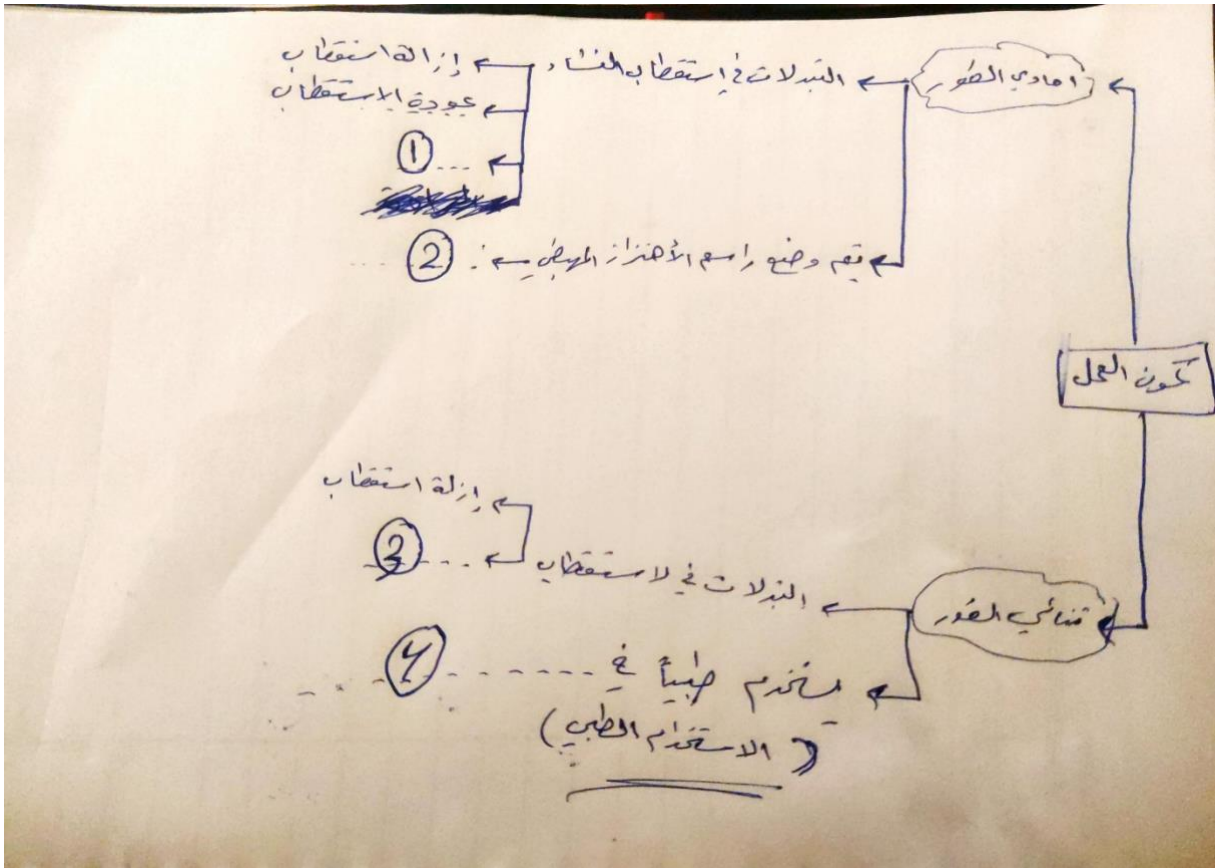 كمون العمل
احادي الطور
التبدلات في استقطاب الغشاء
إزالة استقطاب
عودة الاستقطاب
... 1
يتم وضع راسم الأهتزاز المهبطي : 2 ...
ثنائي الطور
التبدلات في لاستقطاب
إزلة استقطاب
... 3 ...
يستخدم طبياً في ...... 4 ...
( الاستخدام الطبي )